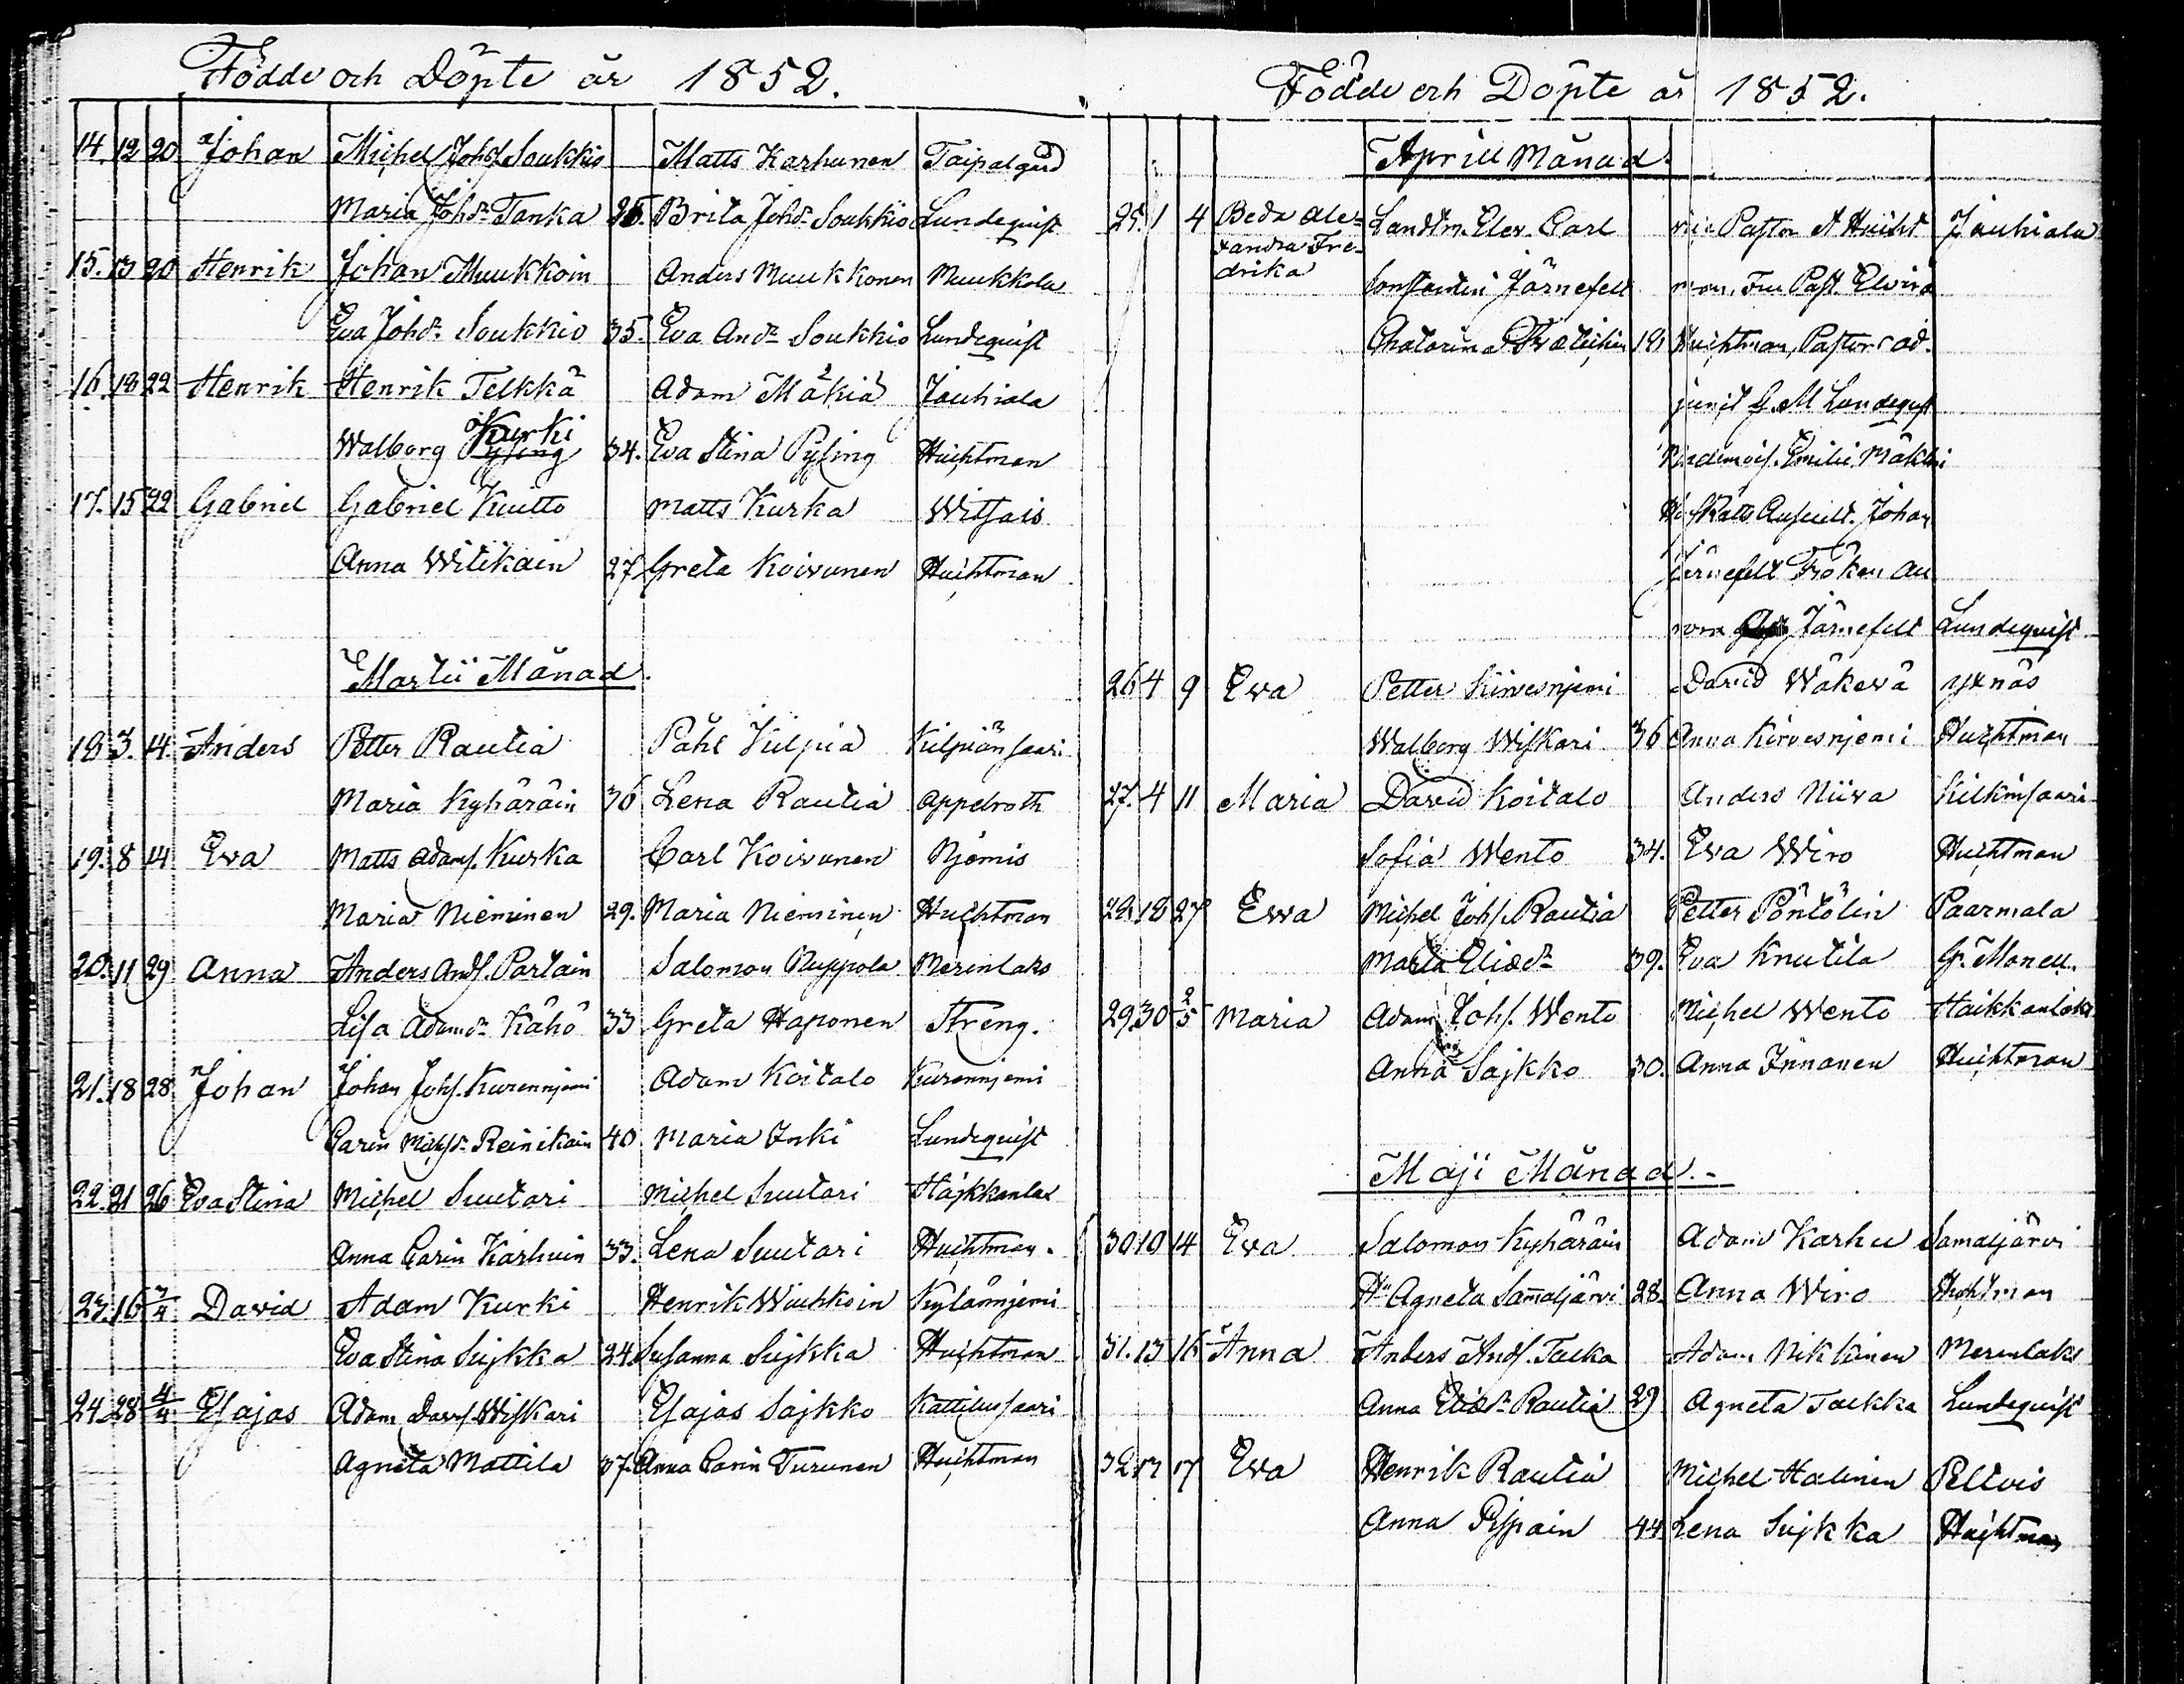 Födde och Döpte år 1852.
14. 12 20 Johan Michel Johs. Soukkio Matts Karhunen Taipalgård
Maria Johdr. Tanka 25. Brita Johdr. Soukkio Lundequist
15. 13 20 Henrik Johan Muukkoin Anders Muukkonen Muukkola
Eva Johdr. Soukkio 35. Eva Andr. Soukkio Lundequist
16. 18 22 Henrik Henrik Telkkä Adam Mäkiä Jauhiala
Kurki
Walborg Pyfing 34. Eva Stina Pyfing Huchtman
17. 15 22 Gabriel Gabriel Kuitto Matts Kurka Witsais
Anna Witikain 27 Greta Koivunen Huchtman
Martii Månad.
18 3. 14. Anders Petter Rautia Påhl Kilpiä Kilpiänsaari
Maria Kyhäräin 36 Lena Rautia Appelroth
19. 8 14 Eva Matts Adams. Kurka Carl Koivunen Njemis
Maria Nieminen 29. Maria Nieminen Huchtman
20. 11 29 Anna Anders Ands. Partain Salomon Ruppola Merenlaks
Lisa Adamdr. Kähö 33 Greta Haponen Streng.
21. 18 28 Johan Johan Johs. Kurennjemi Adam Koitalo Kurennjemi
Carin Michsdr. Reinikain 40 Maria Inki Lundequist
22. 21 26 Eva Stina Michel Suutari Michel Suutari Hajkkanlax
Anna Carin Karhuin 33. Lena Suutari Huchtman.
23. 16 3/4 David Adam Kurki Henrik Wiuhkoin Kylännjemi
Eva Stina Sujkka 24. Susanna Sujkka Huchtman
24 28 4/4 Esajas Adam Davs. Wiskari Esajas Sajkko Kattilusaari
Agneta Mattila 37. Anna Carin Turunen Huchtman
Födde och Döpte år 1852.
Aprill Månad.
25. 1 4 Beda Ale- Landtm. Elev. Carl Pastor A Hucht Jauhiala
xandra Fre-
drika Constantin Järnefelt man, Fru Past. Elvira
Chatarina 19 Huchtman, Pastors ad.
junct G. M Lundequist
Mademois. Emilie
Hof Rätts Auscult. Johan
Järnefelt Fröken Au
rora Järnefelt Lundequist
26 4 9 Eva Petter Kirvesnjemi David Wäkevä yxnäs
Walborg Wiskari 36 Anna Kirvesnjemi Huchtman
27. 4 11 Maria David Koitalo Anders Niiva Kilkinsaari
Sofia Wento 34. Eva Wiro Huchtman
28. 18 27 Ewa Michel Johs. Rautia Petter Pöntölin Paarmala
Maria Eliedr. 39. Eva Knutila G. Monell.
29 30 2/5 Maria Adam Johs. Wento Michel Wento Haikkanlaks
Anna Sajkko 30. Anna Innanen Huchtman
Maji Månad.-
30 10 14 Eva Salomon Kyhäräin Adam Karhu Samaljärvi
Hu Agneta Samaljärvi 28. Anna Wiro Huchtman
31. 13 16 Anna Anders Ands. Tacka Adam Nikkinen Merenlaks
Anna Eliedr. Rautia 29 Agneta Tackka Lundequist
32 12 17 Eva Henrik Rautia Michel Halinin Peltois
Anna Pispain 44. Lena Sujkka Huchtman